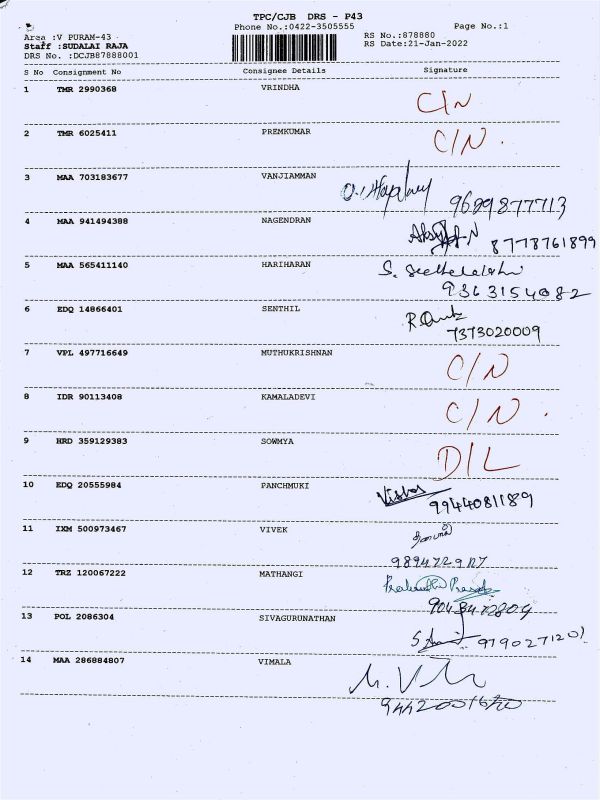 TPC/CJB DRS - P43
Phone No.:0422-3505555 Page No.:1
Area :V PURAM-43 RS No.:878880
Staff :SUDALAI RAJA RS Date:21-Jan-2022
DRS No. :DCJB87888001
S No Consignment No Consignee Details Signature
1 TMR 2990368 VRINDHA C/N
2 TMR 6025411 PREMKUMAR C/N.
3 MAA 703183677 VANJIAMMAN
9689877713
4 MAA 941494388 NAGENDRAN
8778761899
5 MAA 565411140 HARIHARAN S.
9363154082
6 EDQ 14866401 SENTHIL
7373020009
7 VPL 497716649 MUTHUKRISHNAN C/N
8 IDR 90113408 KAMALADEVI C/N.
9 HRD 359129383 SOWMYA D/L
10 EDQ 20555984 PANCHMUKI
9944081189
11 IXM 500973467 VIVEK
12 TRZ 120067222 MATHANGI
13 POL 2086304 SIVAGURUNATHAN
9790271201
14 MAA 286884807 VIMALA